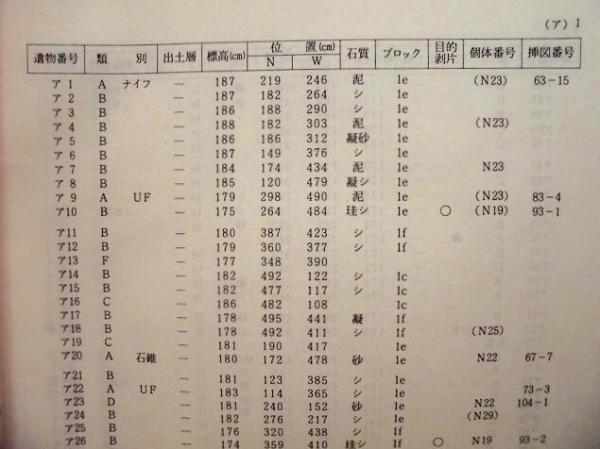 (ア) 1
遺物番号 類 別 出土層 標高(cm) 位 置(cm) 石質 ブロック 目的剥片 個体番号 挿図番号
N W
ア 1 A ナイフ — 187 219 246 泥 1e (N23) 63-15
ア 2 B — 187 182 264 シ 1e
ア 3 B — 186 188 290 シ 1e
ア 4 B — 188 182 303 泥 1e (N23)
ア 5 B — 186 186 312 凝砂 1e
ア 6 B — 187 149 376 シ 1e
ア 7 B — 184 174 434 泥 1e N23
ア 8 B — 185 120 479 凝シ 1e
ア 9 A UF — 179 298 490 泥 1e (N23) 83-4
ア10 B — 175 264 484 珪シ 1e ○ (N19) 93-1
ア11 B — 180 387 423 シ 1f
ア12 B — 179 360 377 シ 1f
ア13 F — 177 348 390
ア14 B — 182 492 122 シ 1c
ア15 B — 182 477 117 シ 1c
ア16 C — 186 482 108 1c
ア17 B — 178 495 441 凝 1f
ア18 B — 178 492 411 シ 1f (N25)
ア19 C — 181 190 417 1e
ア20 A 石錐 — 180 172 478 砂 1e N22 67-7
ア21 B — 181 123 385 シ 1e
ア22 A UF — 183 114 365 シ 1e 73-3
ア23 D — 181 240 152 砂 1e N22 104-1
ア24 B — 182 276 217 シ 1e (N29)
ア25 B — 176 320 438 シ 1f
ア26 B — 174 359 410 珪シ 1f ○ N19 93-2